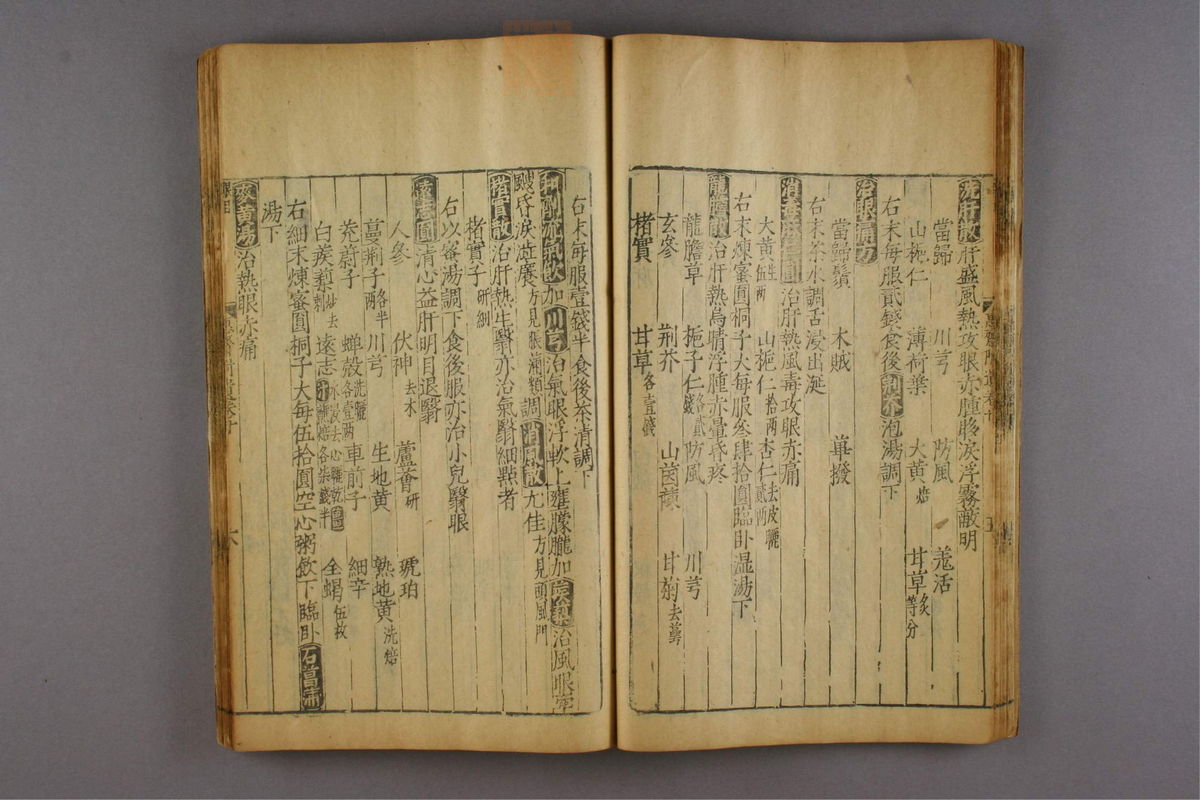 洗肝散肝盛風熱攻眼赤腫眵淚浮霧蔽明
當歸 川芎 防風 羗活
山梔仁 薄荷葉 大黄焙 甘草炙等分
右末每服貳錢食後荆芥泡湯調下
治眼痛方
當歸鬚 木賊 蓽撥
右末茶水調舌浸出涎
圓治肝熱風毒攻眼赤痛
大黄生伍兩 山梔仁拾兩 杏仁去皮曬貳兩
右末煉蜜圓桐子大每服叁肆拾圓臨卧温湯下
龍膽散治肝熱烏睛浮腫赤暈昏疼
龍膽草 梔子仁各貳錢 防風 川芎
玄參 荆芥 山茵蔯 甘菊去萼
楮實 甘草各壹錢
右末每服壹錢半食後茶清調下
和劑流氣飲加川芎治氣眼浮軟上壅朦朧加蒺藜治風眼窄
眼昏淚澁癢方見脹滿類調消風散尤佳方見頭風門
楮實散治肝熱生翳亦治氣翳細點者
楮實子研細
右以蜜湯調下食後服亦治小兒翳眼
遠志圓清心益肝明目退翳
人參 伏神去木 蘆薈研 琥珀
蔓荆子各半兩 川芎 生地黄 熟地黄洗焙
茺蔚子 蟬殻洗曬各壹兩 車前子 細辛
白蒺藜炒去刺 遠志水浸去心曬乾焙各柒錢半 全蝎伍枚
右細末煉蜜圓桐子大每伍拾圓空心粥飲下臨卧石菖蒲
湯下
麥黄湯治熱眼赤痛